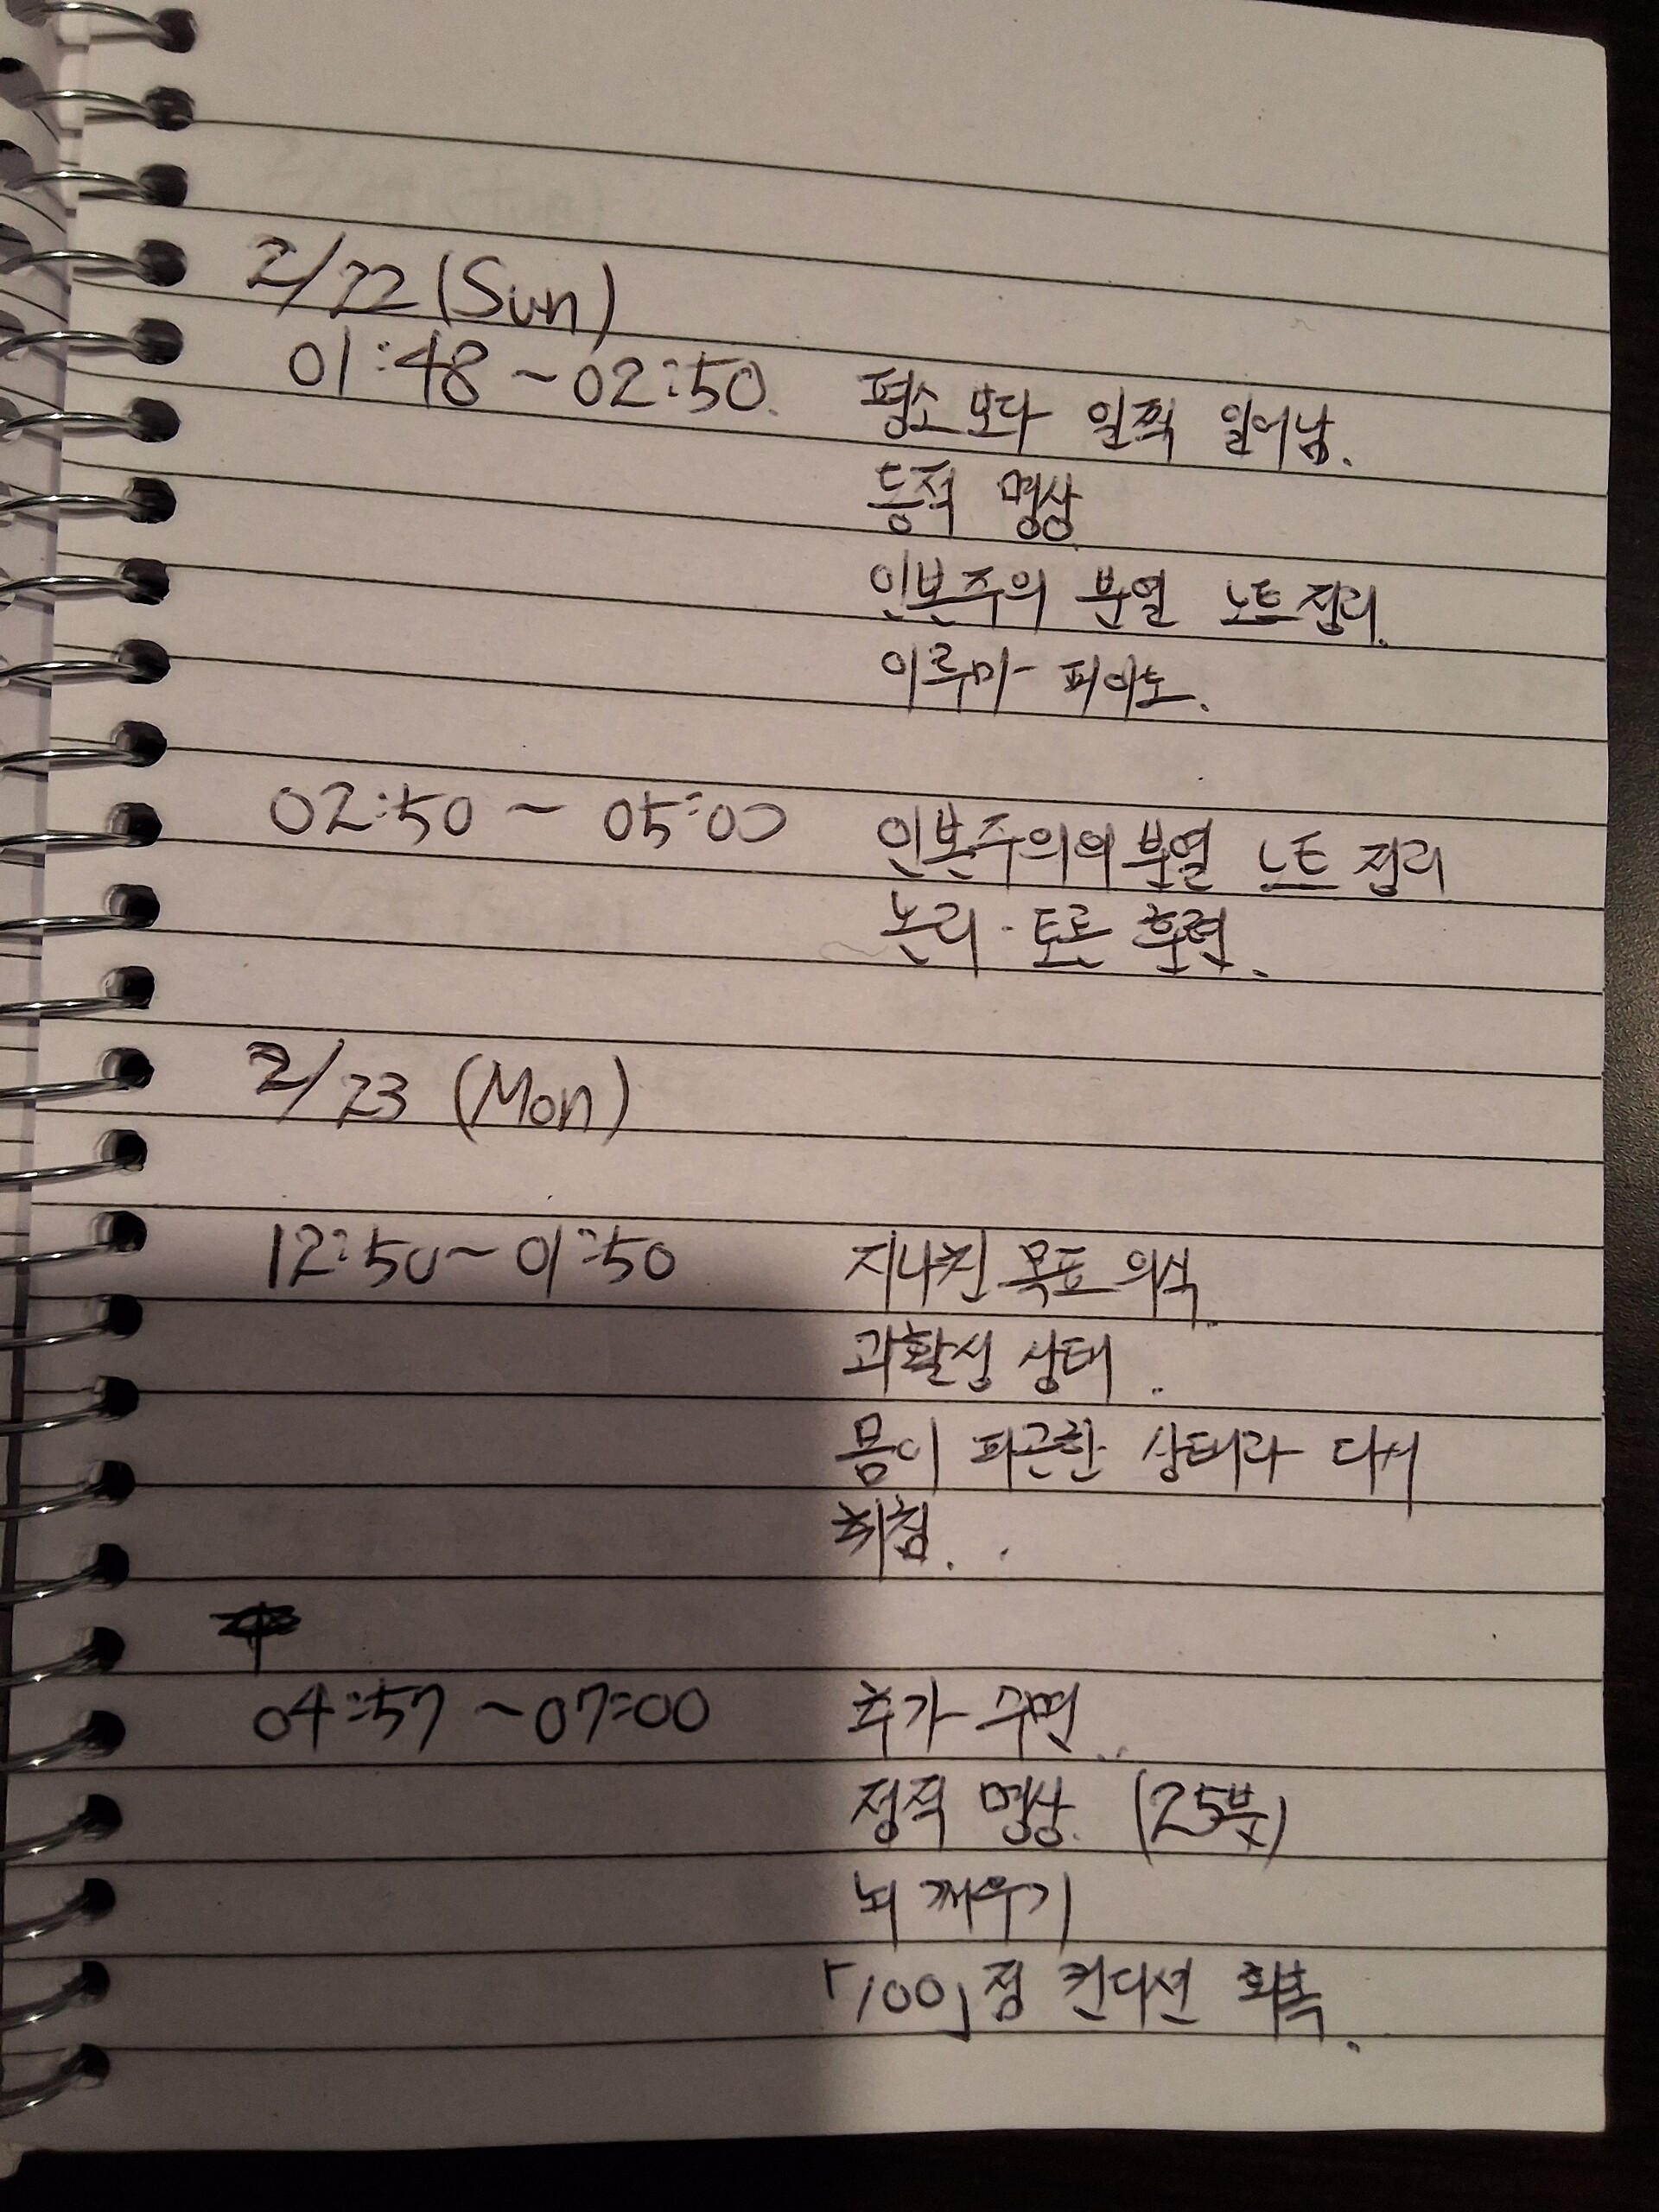 2/22 (Sun)
01:48 ~ 02:50. 평소보다 일찍 일어남.
동적 명상
인본주의 분열 노트 정리.
이루마 피아노.
02:50 ~ 05:00 인본주의의 분열 노트 정리
논리·토론 훈련.
2/23 (Mon)
12:50 ~ 01:50 지나친 목표 의식.
과활성 상태.
몸이 피곤한 상태라 다시
취침.
04:57 ~ 07:00 추가 수면.
정적 명상. (25분)
뇌 깨우기
「100」점 컨디션 회복.